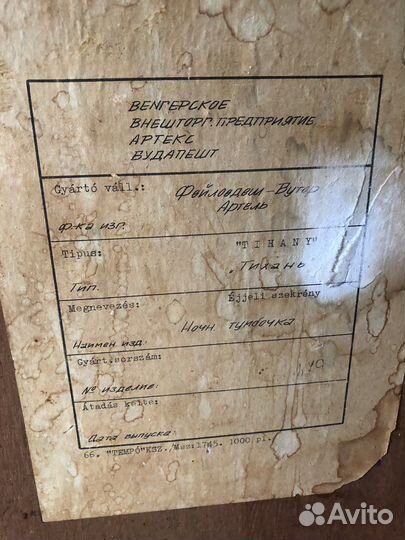 ВЕНГЕРСКОЕ
ВНЕШТОРГ. ПРЕДПРИЯТИЕ
АРТЕКС
БУДАПЕШТ
Gyártó váll.: Фейлэдеш-Бутор
Артель
Ф-ка изг.
Tipus: "TIHANY"
„Тихань"
Тип.
Megnevezés: Éjjeli szekrény
Ночн. тумбочка
Наимен изд:
Gyárt.sorszám:
№ изделие:
Átadás kelte:
Дата выпуска:
66. "TEMPÓ"KSZ./Msz:1745. 1000 pl.
Avito